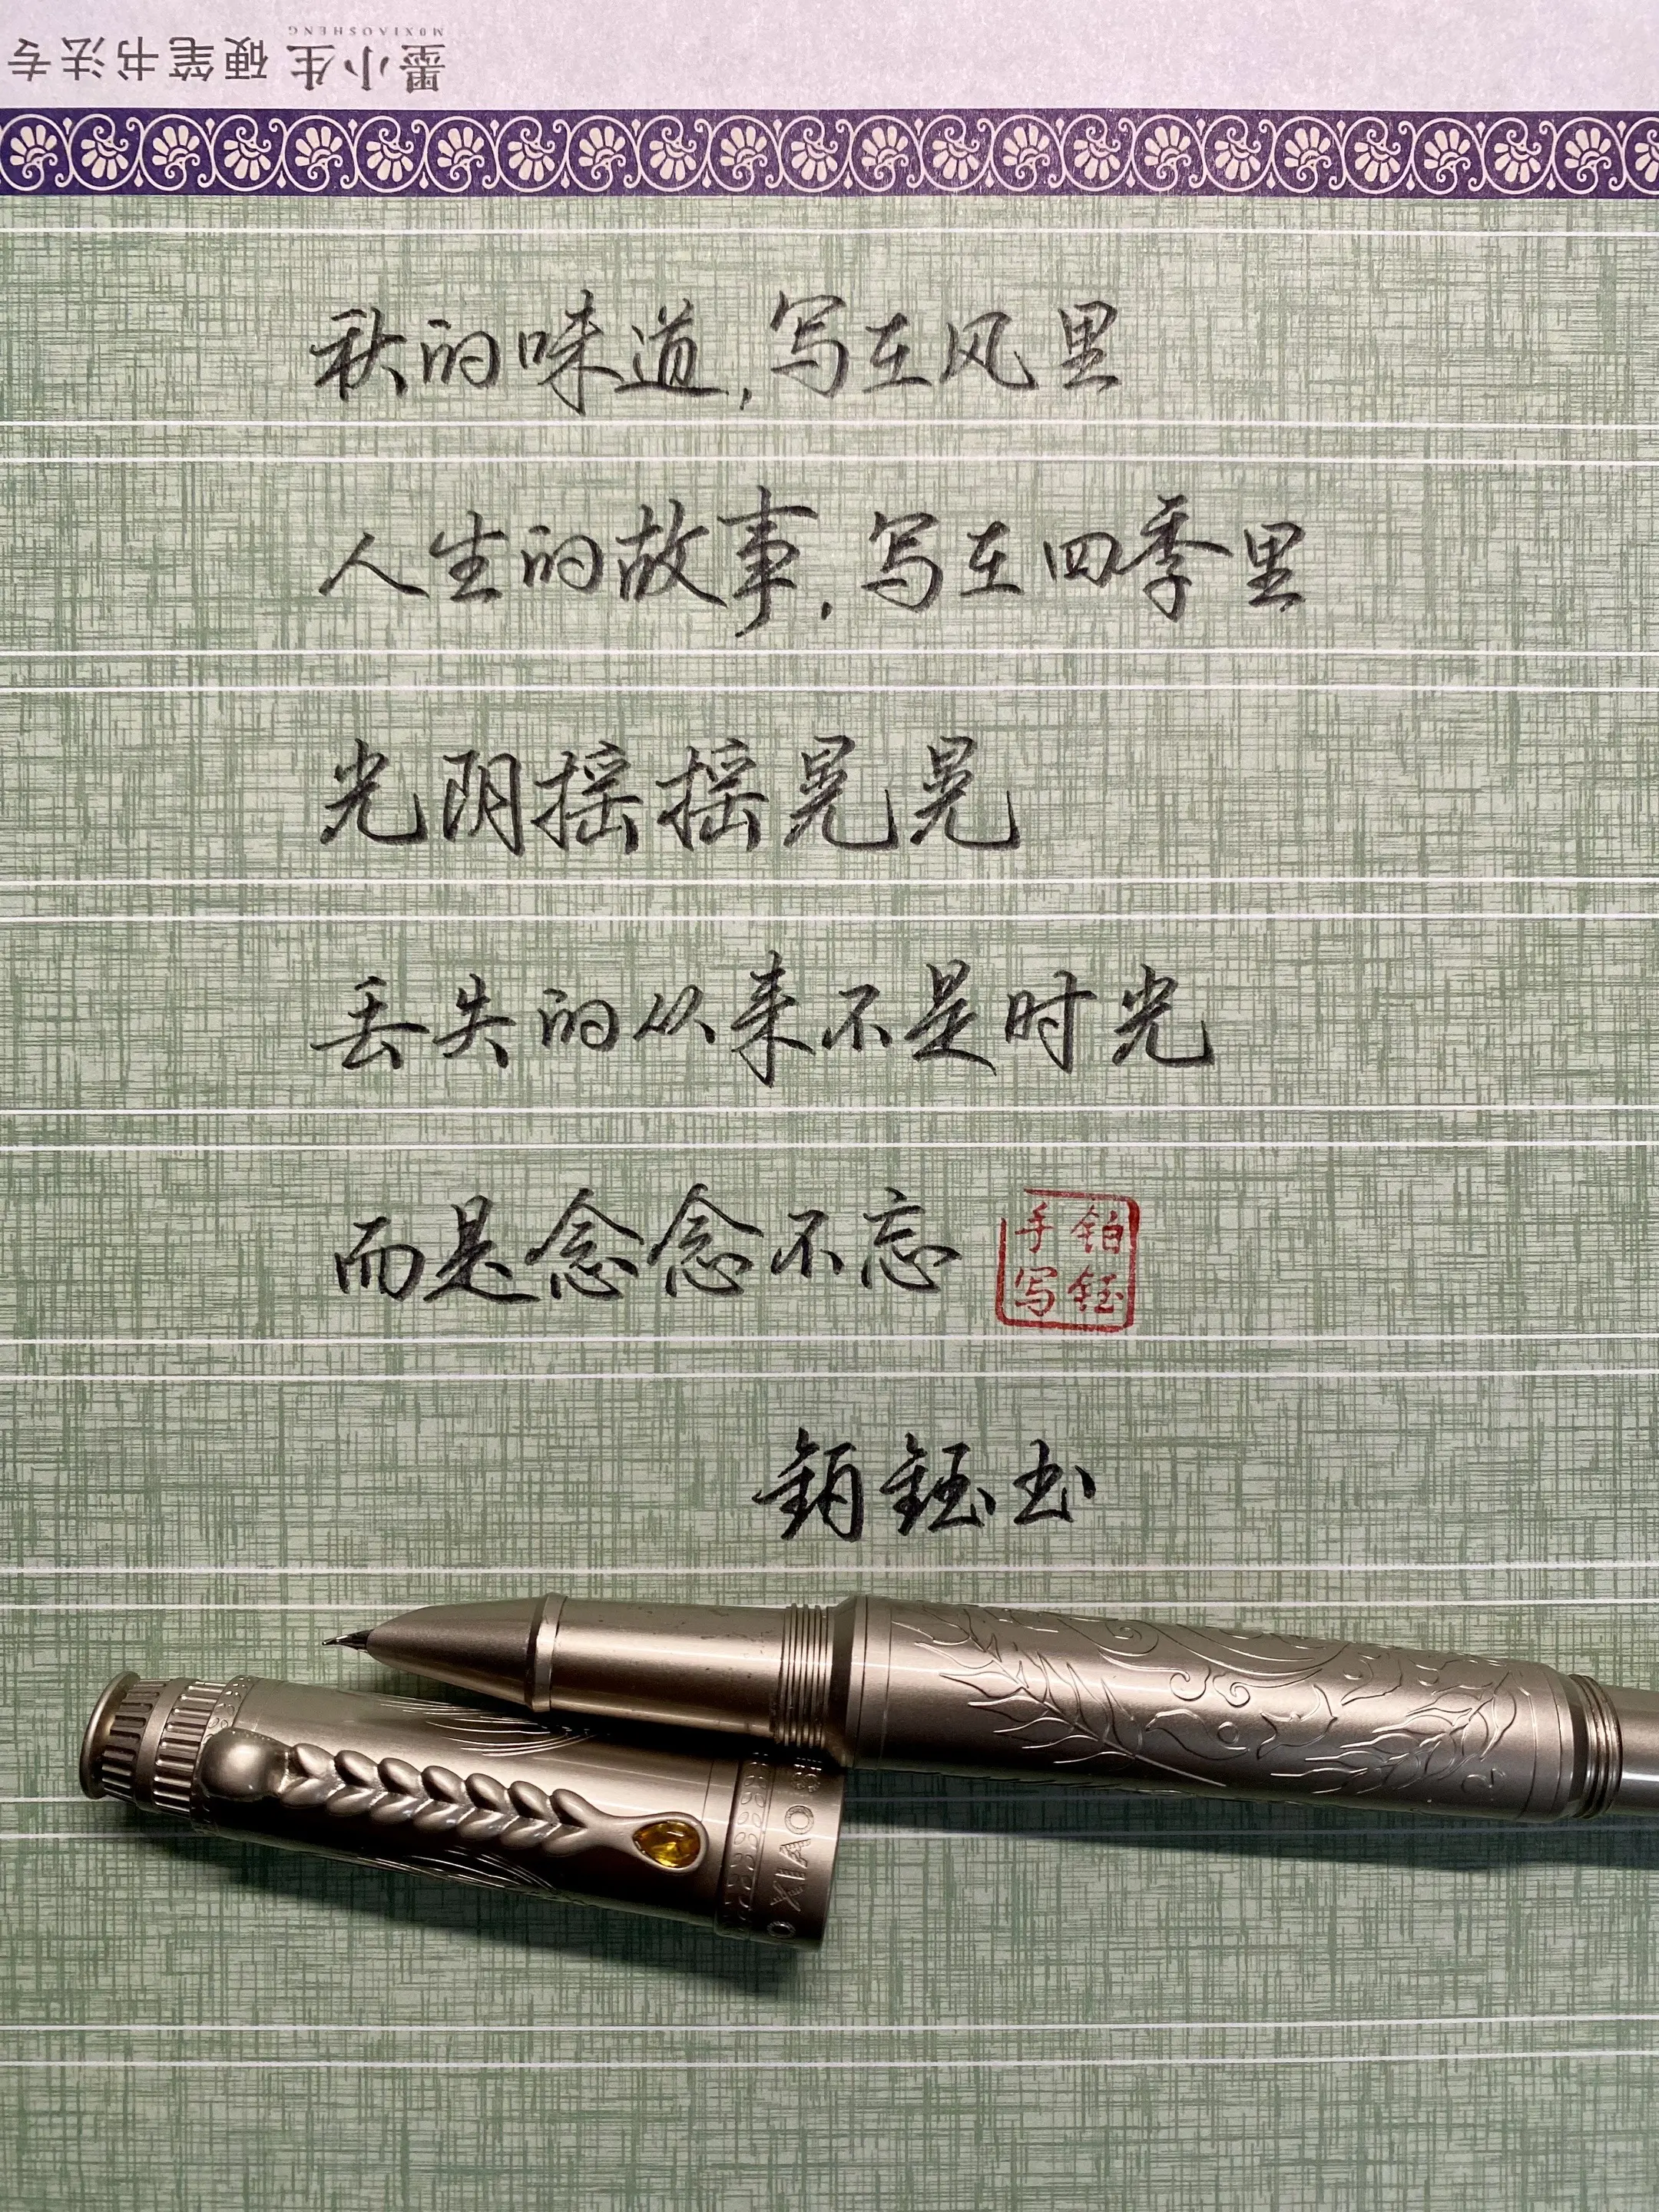 墨小生 硬笔书法专
MOXIAOSHENG
秋的味道,写在风里
人生的故事,写在四季里
光阴摇摇晃晃
丢失的从来不是时光
而是念念不忘
铂钰
手写
铂钰书
O XIAO